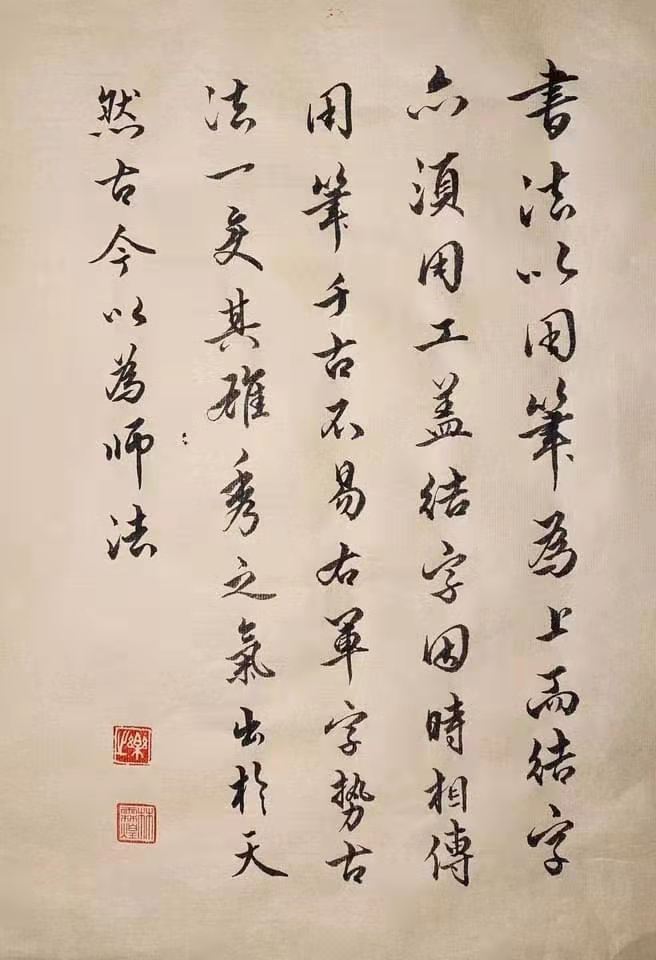 書法以用筆為上而結字
亦須用工盖結字因時相傳
用筆千古不易右軍字勢古
法一变其雄秀之氣出於天
然古今以為师法